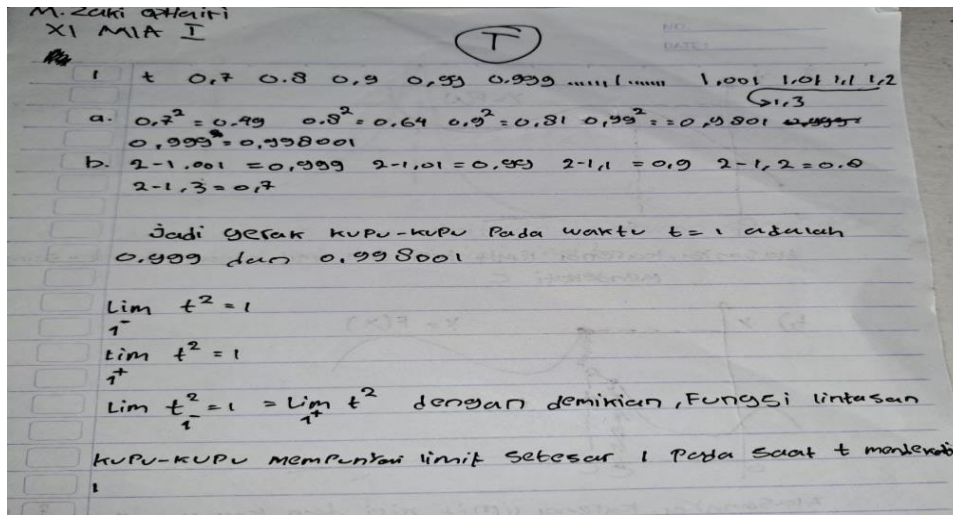 M. Zaki
XI MIA I
T
1 t 0,7 0.8 0,9 0,99 0.999 ......1...... 1,001 1,01 1,1 1,2
1,3
a. 0,7² = 0.49 0.8² = 0.64 0,9² = 0,81 0,99² = = 0,9801
0,999² = 0,998001
b. 2-1.001 = 0,999 2-1,01 = 0,99 2-1,1 = 0,9 2-1,2 = 0.8
2-1,3 = 0,7
Jadi gerak kupu-kupu Pada waktu t = 1 adalah
0.999 dan 0.998001
Lim t² = 1
1⁻
Lim t² = 1
1⁺
Lim t² = 1 = Lim t² dengan demikian, Fungsi lintasan
1⁻ 1⁺
kupu-kupu mempunyai limit sebesar 1 Pada saat t mendekati
1